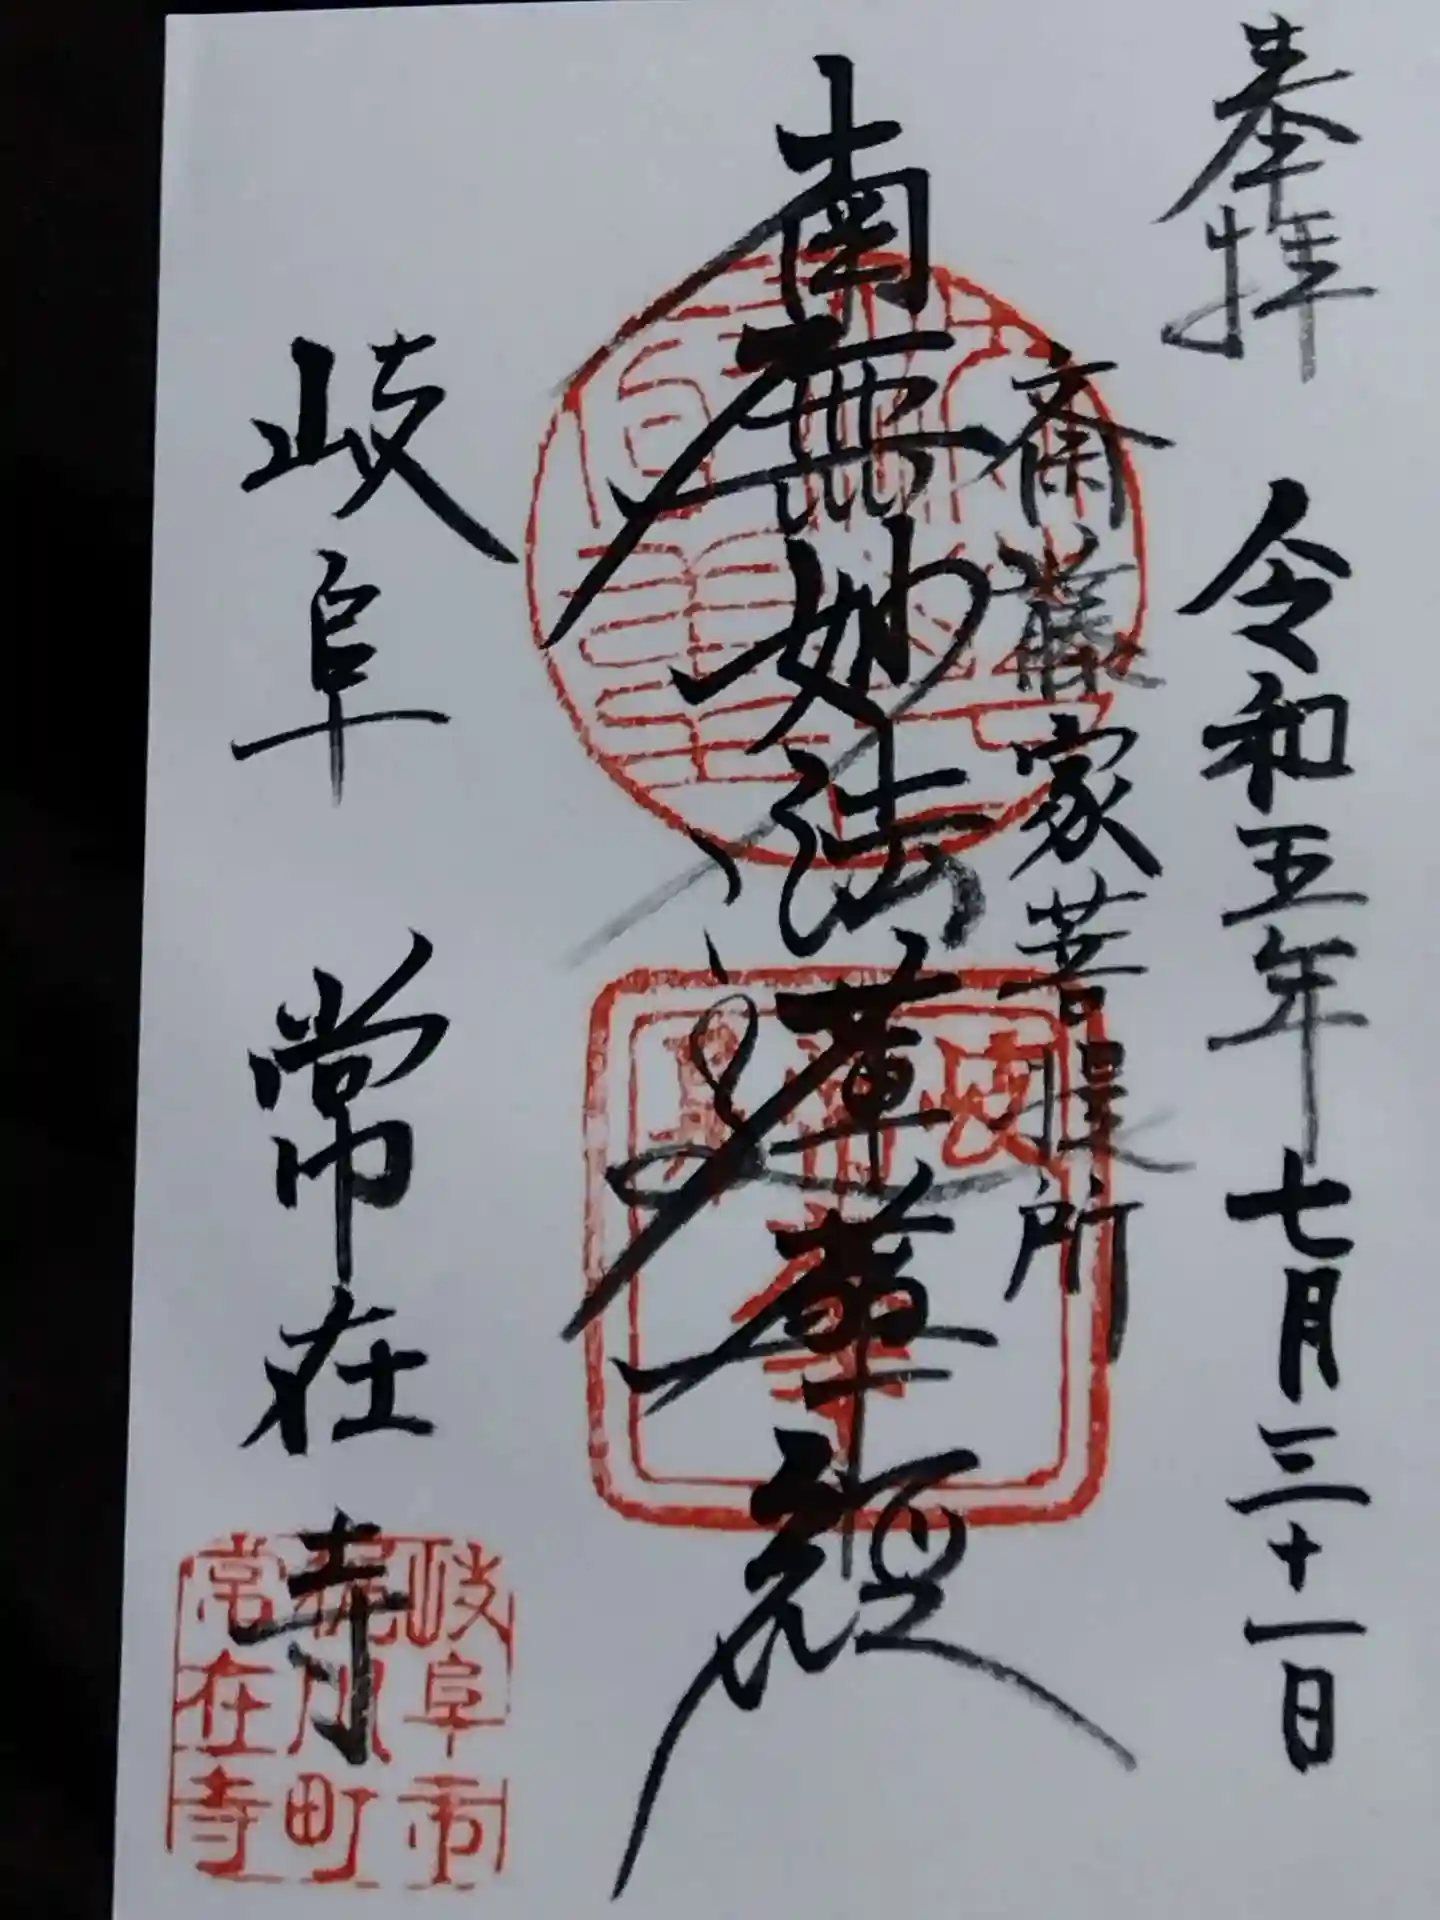 奉拝 令和五年七月三十一日
斎藤家菩提所
南無妙法蓮華経
岐阜 常在寺
岐阜市
梶川町
常在寺